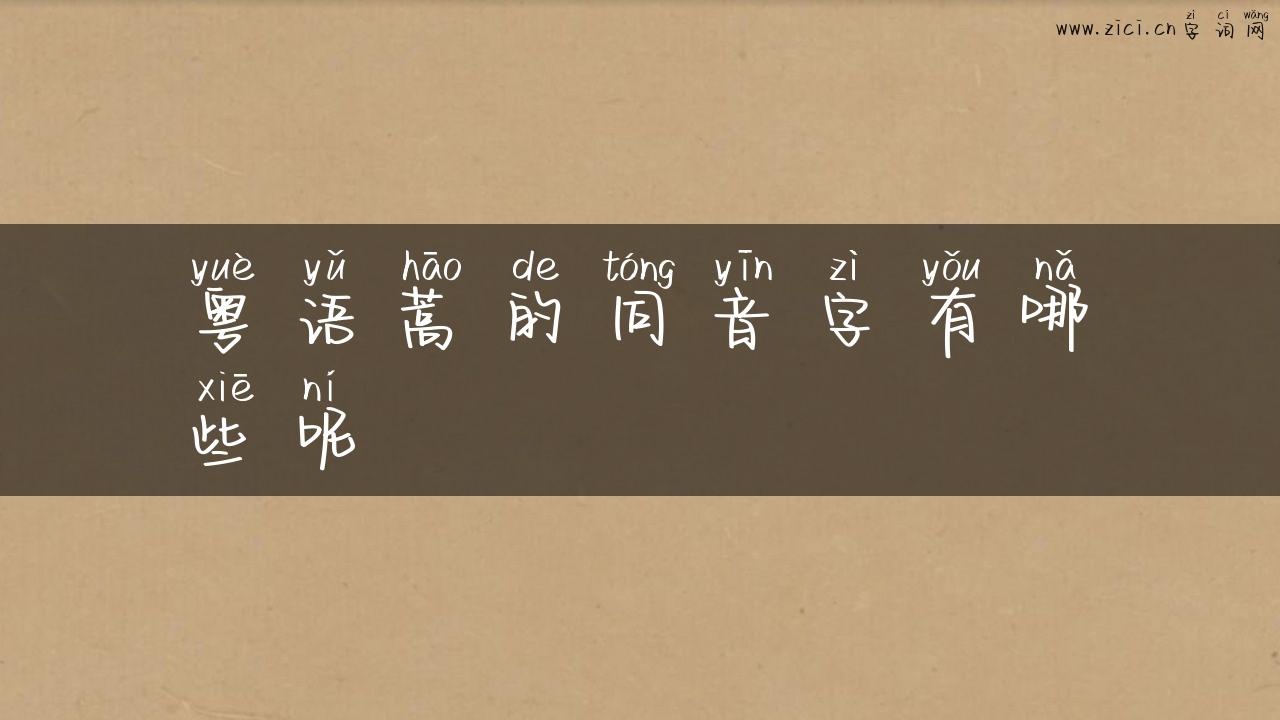 zì cí wǎng
www.zici.cn 字词网
yuè yǔ hāo de tóng yīn zì yǒu nǎ
粤语蒿的同音字有哪
xiē ní
些呢